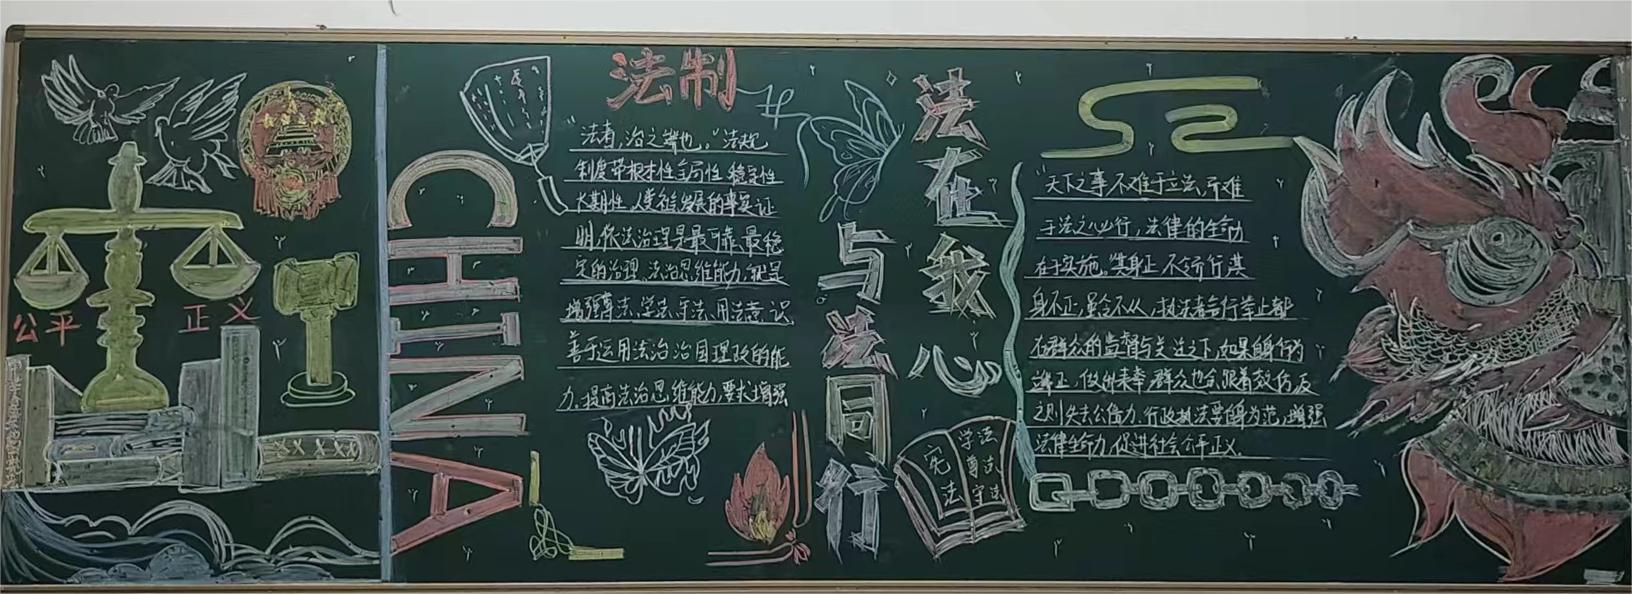 公平
正义
CHINA
法制
"法者,治之端也。"法规
制度带根本性全局性 稳定性
长期性,人类社会发展的事实证
明,依法治理是最可靠、最稳
定的治理 法治思维能力,就是
增强尊法、学法、守法、用法意识
善于运用法治治国理政的能
力,提高法治思维能力,要求增强
与法同行
法在我心
宪法
学法
尊法
守法
"天下之事不难于立法,而难
于法之必行,法律的生命
在于实施,"其身正 不令而行,其
身不正,虽令不从,"执法者言行举止都
在群众的监督与关注之下,如果自身行为
端正,
群众也会跟着效仿,反
之则失去公信力,行政执法要自身为范,增强
法律生命力,促进社会公平正义。